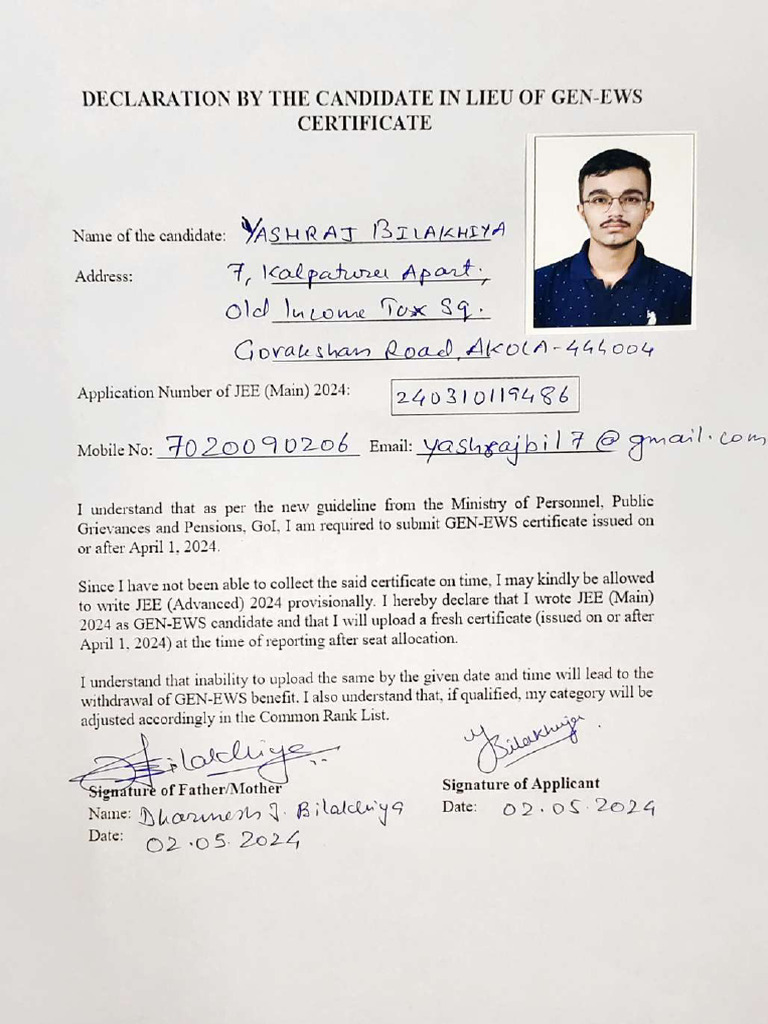 DECLARATION BY THE CANDIDATE IN LIEU OF GEN-EWS
CERTIFICATE
Name of the candidate: YASHRAJ BILAKHIYA
Address: 7, Kalpaturu Apart.,
Old Income Tax Sq.
Gorakshan Road, AKOLA-444004
Application Number of JEE (Main) 2024: 240310119486
Mobile No: 7020090206 Email: yashrajbil7@gmail.com
I understand that as per the new guideline from the Ministry of Personnel, Public
Grievances and Pensions, GoI, I am required to submit GEN-EWS certificate issued on
or after April 1, 2024.
Since I have not been able to collect the said certificate on time, I may kindly be allowed
to write JEE (Advanced) 2024 provisionally. I hereby declare that I wrote JEE (Main)
2024 as GEN-EWS candidate and that I will upload a fresh certificate (issued on or after
April 1, 2024) at the time of reporting after seat allocation.
I understand that inability to upload the same by the given date and time will lead to the
withdrawal of GEN-EWS benefit. I also understand that, if qualified, my category will be
adjusted accordingly in the Common Rank List.
Bilakhiya
Y Bilakhiya
Signature of Father/Mother
Signature of Applicant
Name: Dharmesh J. Bilakhiya
Date: 02.05.2024
Date: 02.05.2024